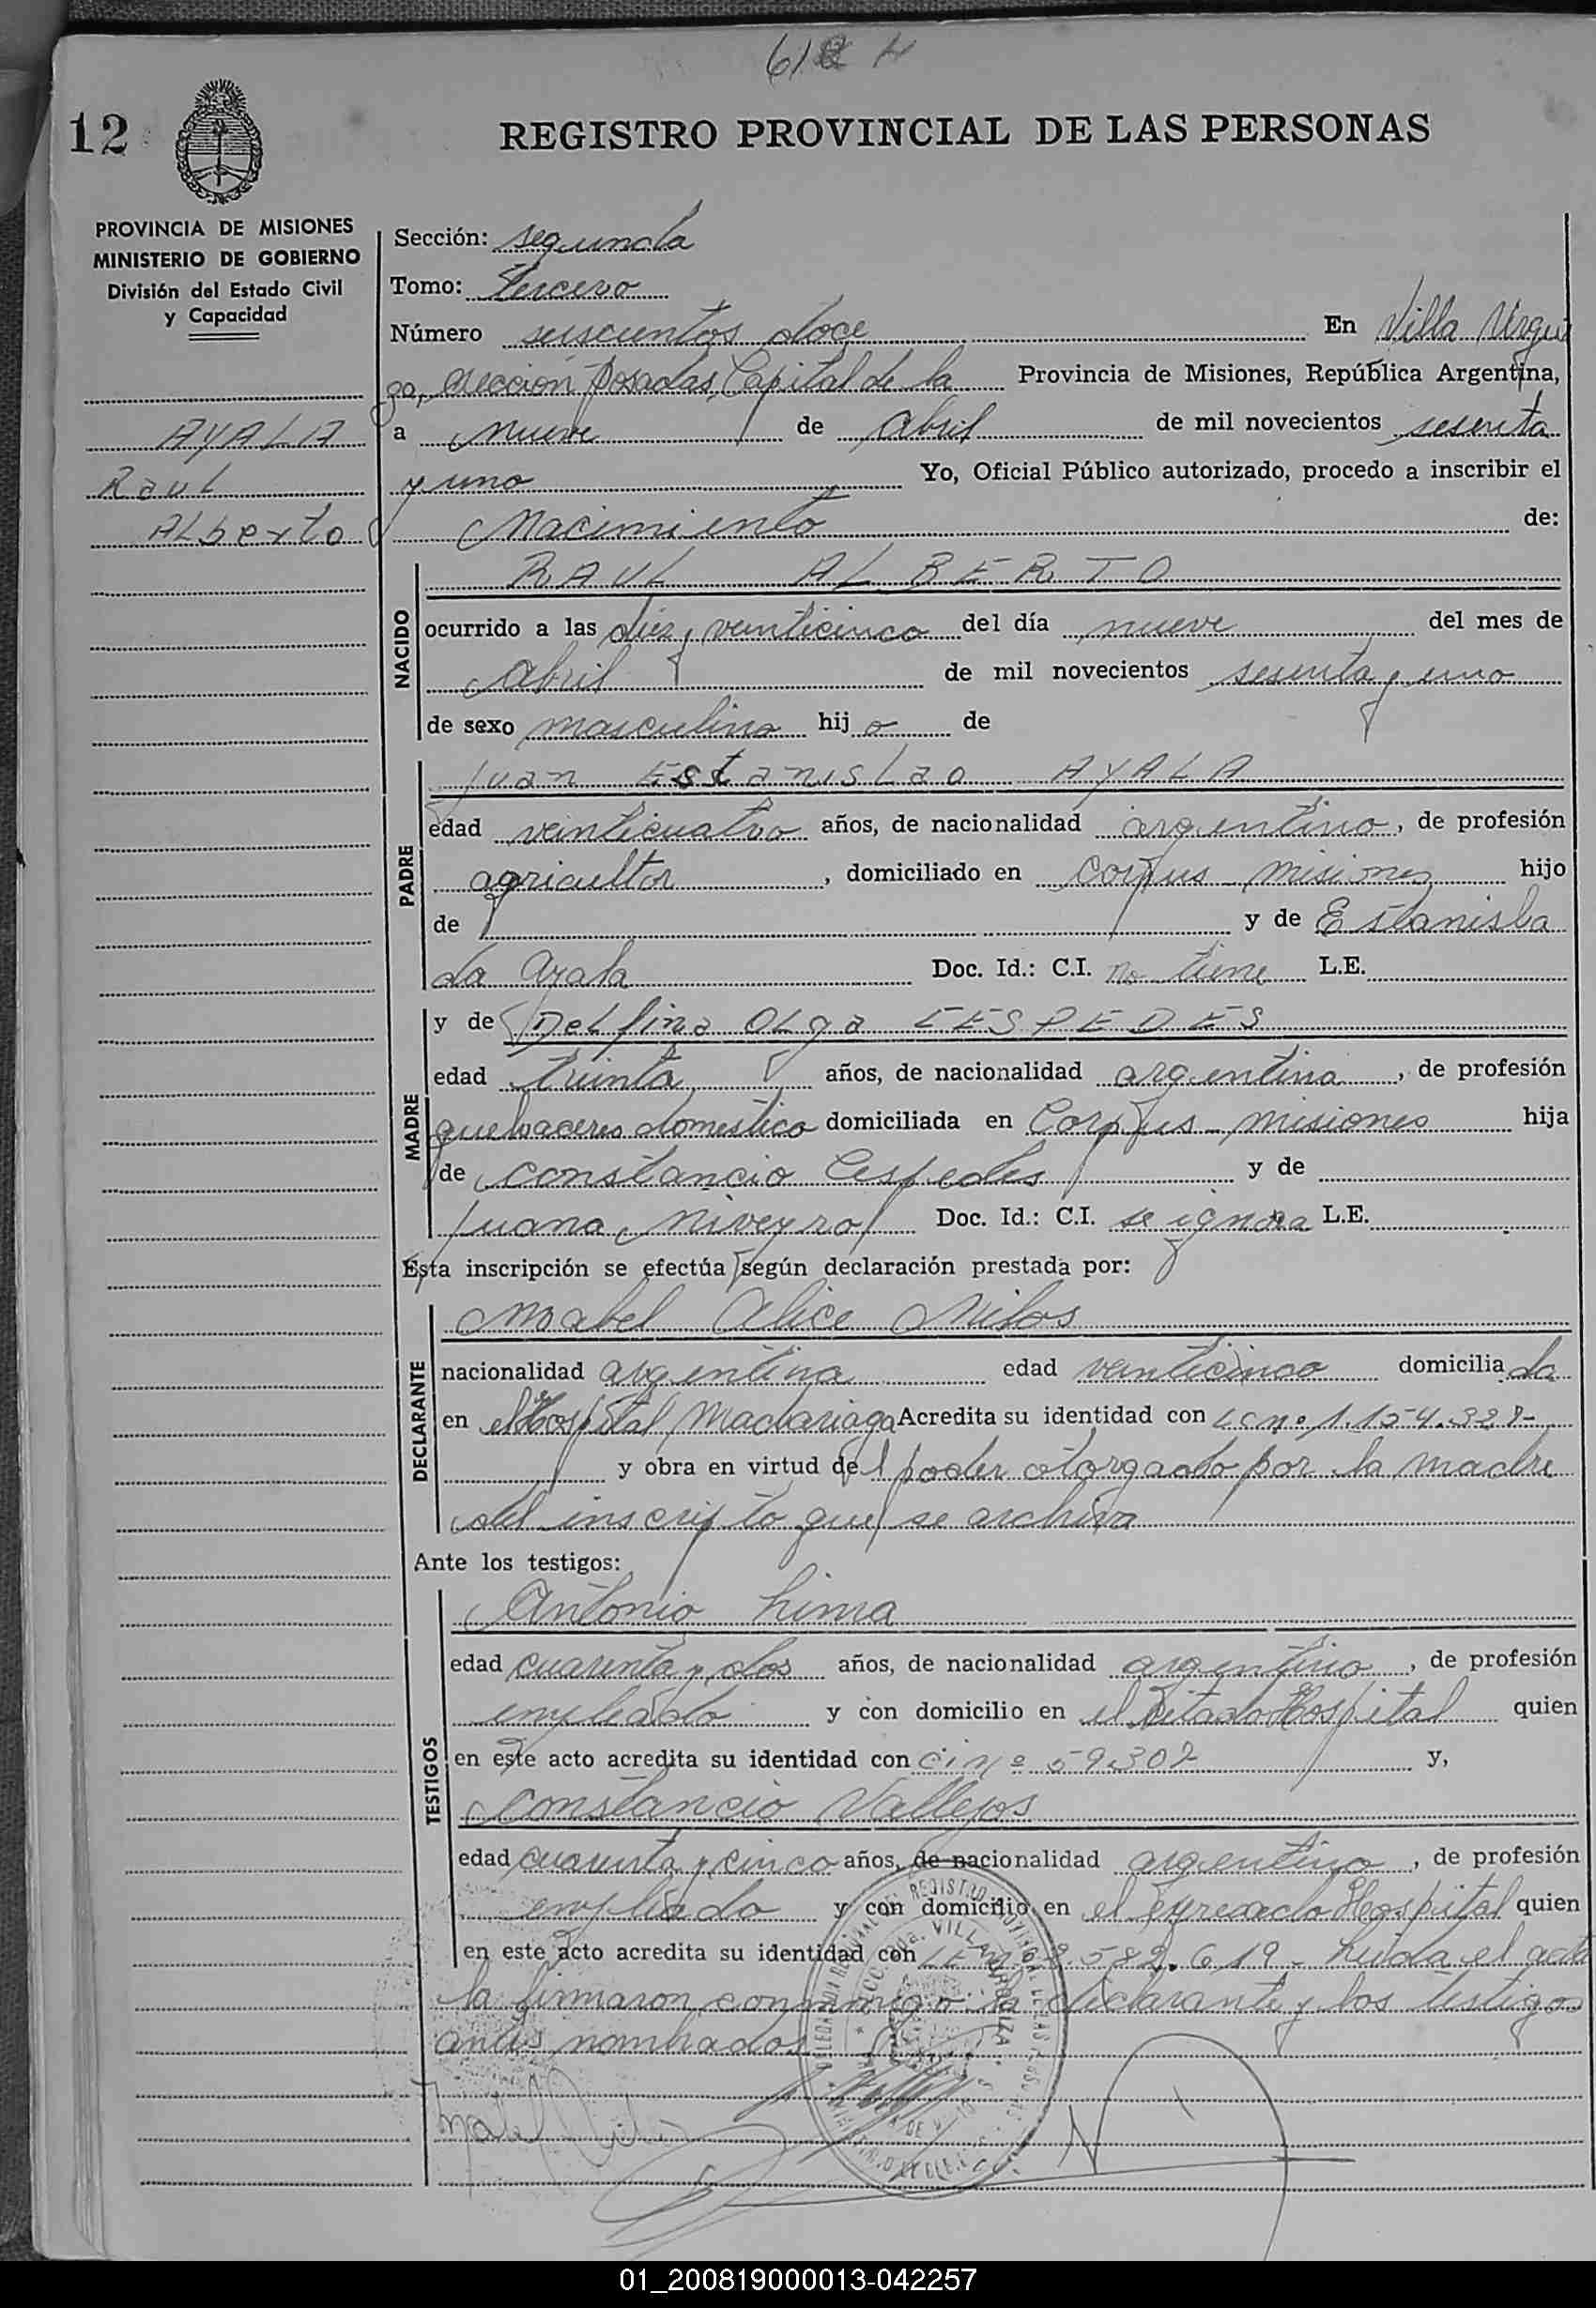 612
12
REGISTRO PROVINCIAL DE LAS PERSONAS
PROVINCIA DE MISIONES
MINISTERIO DE GOBIERNO
División del Estado Civil
y Capacidad
AYALA
Raul
Alberto
Sección: segunda
Tomo: Tercero
Número seiscientos doce En Villa Urqui
za, sección Posadas, Capital de la Provincia de Misiones, República Argentina,
a nueve de abril de mil novecientos sesenta
y uno Yo, Oficial Público autorizado, procedo a inscribir el
Nacimiento de:
NACIDO
RAUL ALBERTO
ocurrido a las diez y veinticinco del día nueve del mes de
abril de mil novecientos sesenta y uno
de sexo masculino hijo de
PADRE
Juan Estanislao AYALA
edad veinticuatro años, de nacionalidad argentino, de profesión
agricultor, domiciliado en Corpus misiones hijo
de y de Estanisla
da Ayala Doc. Id.: C.I. no tiene L.E.
MADRE
y de Delfina Olga CESPEDES
edad treinta años, de nacionalidad argentina, de profesión
quehaceres domestico domiciliada en Corpus - misiones hija
de Constancio Cespedes y de
Juana Niveyro Doc. Id.: C.I. se ignora L.E.
Esta inscripción se efectúa según declaración prestada por:
DECLARANTE
Mabel Alice Milos
nacionalidad argentina edad veinticinco domiciliada
en el Hospital Madariaga Acredita su identidad con LC nº 1.154.328-
y obra en virtud del poder otorgado por la madre
del inscripto que se archiva
Ante los testigos:
TESTIGOS
Antonio Lima
edad cuarenta y dos años, de nacionalidad argentino, de profesión
empleado y con domicilio en el citado Hospital quien
en este acto acredita su identidad con ci nº 59.302 y,
Constancio Vallejos
edad cuarenta y cinco años, de nacionalidad argentino, de profesión
empleado y con domicilio en el expresado Hospital quien
en este acto acredita su identidad con LE 2.582.619 - Leida el acta
la firmaron conmigo la declarante y los testigos
antes nombrados
01_200819000013-042257